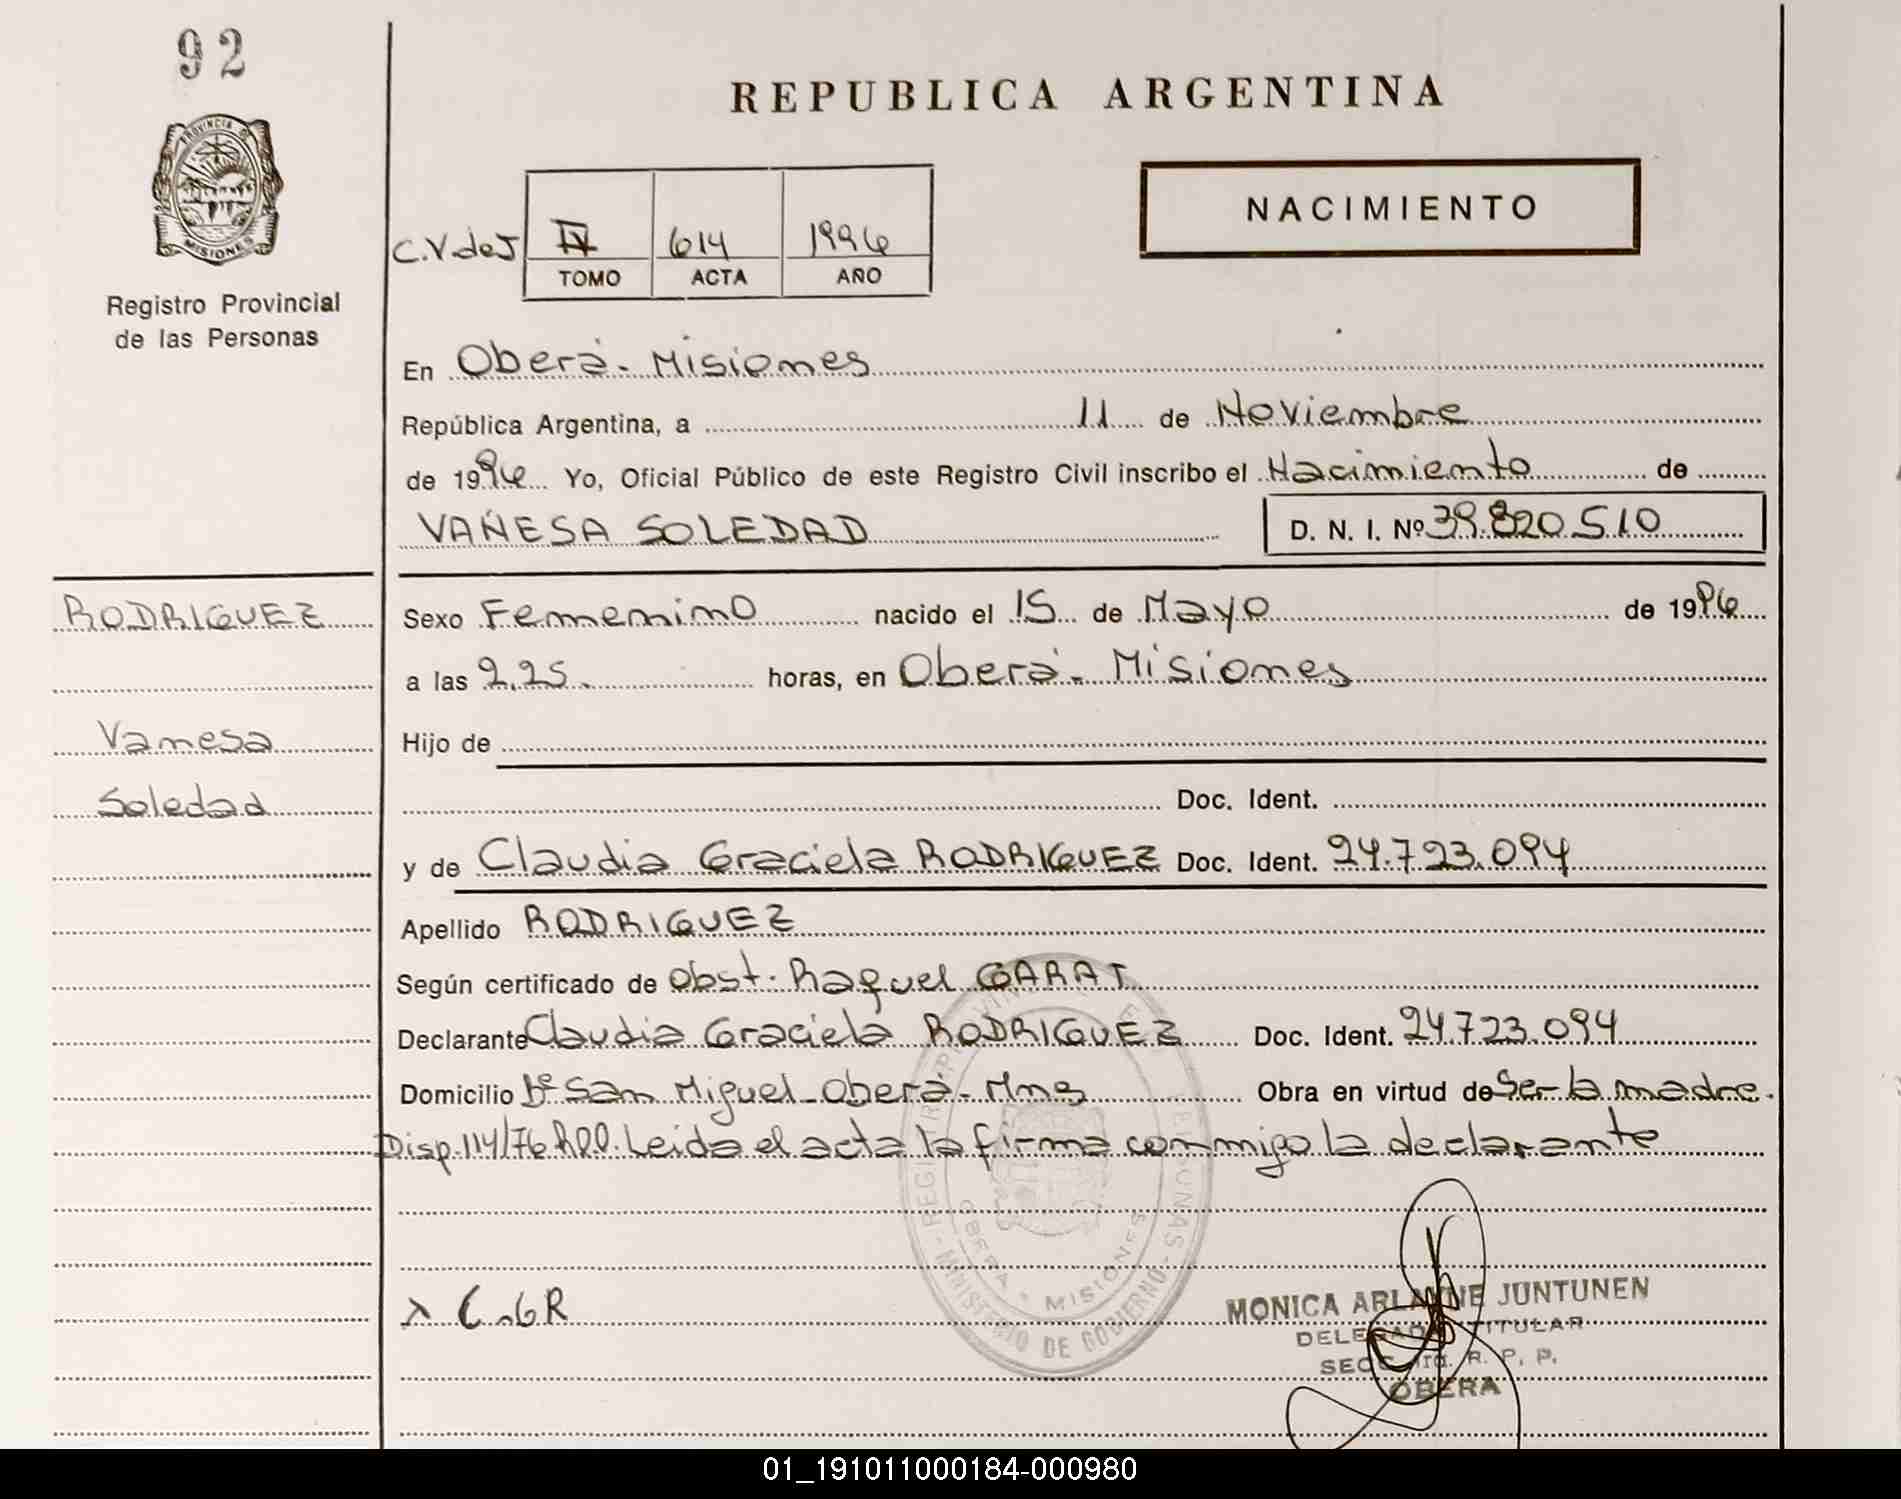 92
REPUBLICA ARGENTINA
PROVINCIA DE
MISIONES
Registro Provincial
de las Personas
C.V.deJ IV 614 1996
TOMO ACTA AÑO
NACIMIENTO
En Oberá - Misiones
República Argentina, a 11 de Noviembre
de 1996 Yo, Oficial Público de este Registro Civil inscribo el Nacimiento de
VANESA SOLEDAD D. N. I. Nº 39.820.510
RODRIGUEZ
Vanesa
Soledad
Sexo Femenino nacido el 15 de Mayo de 1996
a las 2.25. horas, en Oberá - Misiones
Hijo de
Doc. Ident.
y de Claudia Graciela RODRIGUEZ Doc. Ident. 24.723.094
Apellido RODRIGUEZ
Según certificado de Obst. Raquel GARAT
Declarante Claudia Graciela RODRIGUEZ Doc. Ident. 24.723.094
Domicilio Bº San Miguel - Oberá - Mnes Obra en virtud de Ser la madre.
Disp. 114/76 R.P.P. Leida el acta la firma conmigo la declarante
OBERA - MISIONES
MINISTERIO DE GOBIERNO
x C.GR
MONICA ARLAYNE JUNTUNEN
DELEGADA TITULAR
R. P. P.
OBERA
01_191011000184-000980